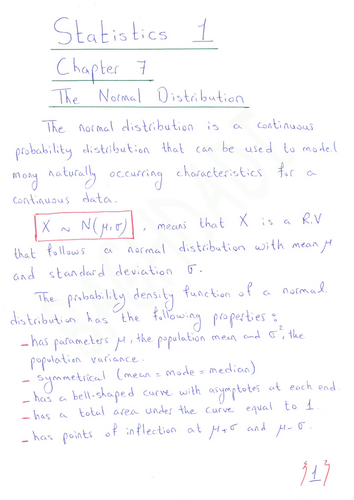 Statistics 1
Chapter 7
The Normal Distribution
The normal distribution is a continuous
probability distribution that can be used to model
many naturally occurring characteristics for a
continuous data.
X ~ N(μ, σ) , means that X is a R.V
that follows a normal distribution with mean μ
and standard deviation σ.
The probability density function of a normal
distribution has the following properties :
- has parameters μ, the population mean and σ², the
population variance.
- symmetrical (mean = mode = median)
- has a bell-shaped curve with asymptotes at each end.
- has a total area under the curve equal to 1.
- has points of inflection at μ+σ and μ-σ.
{1}